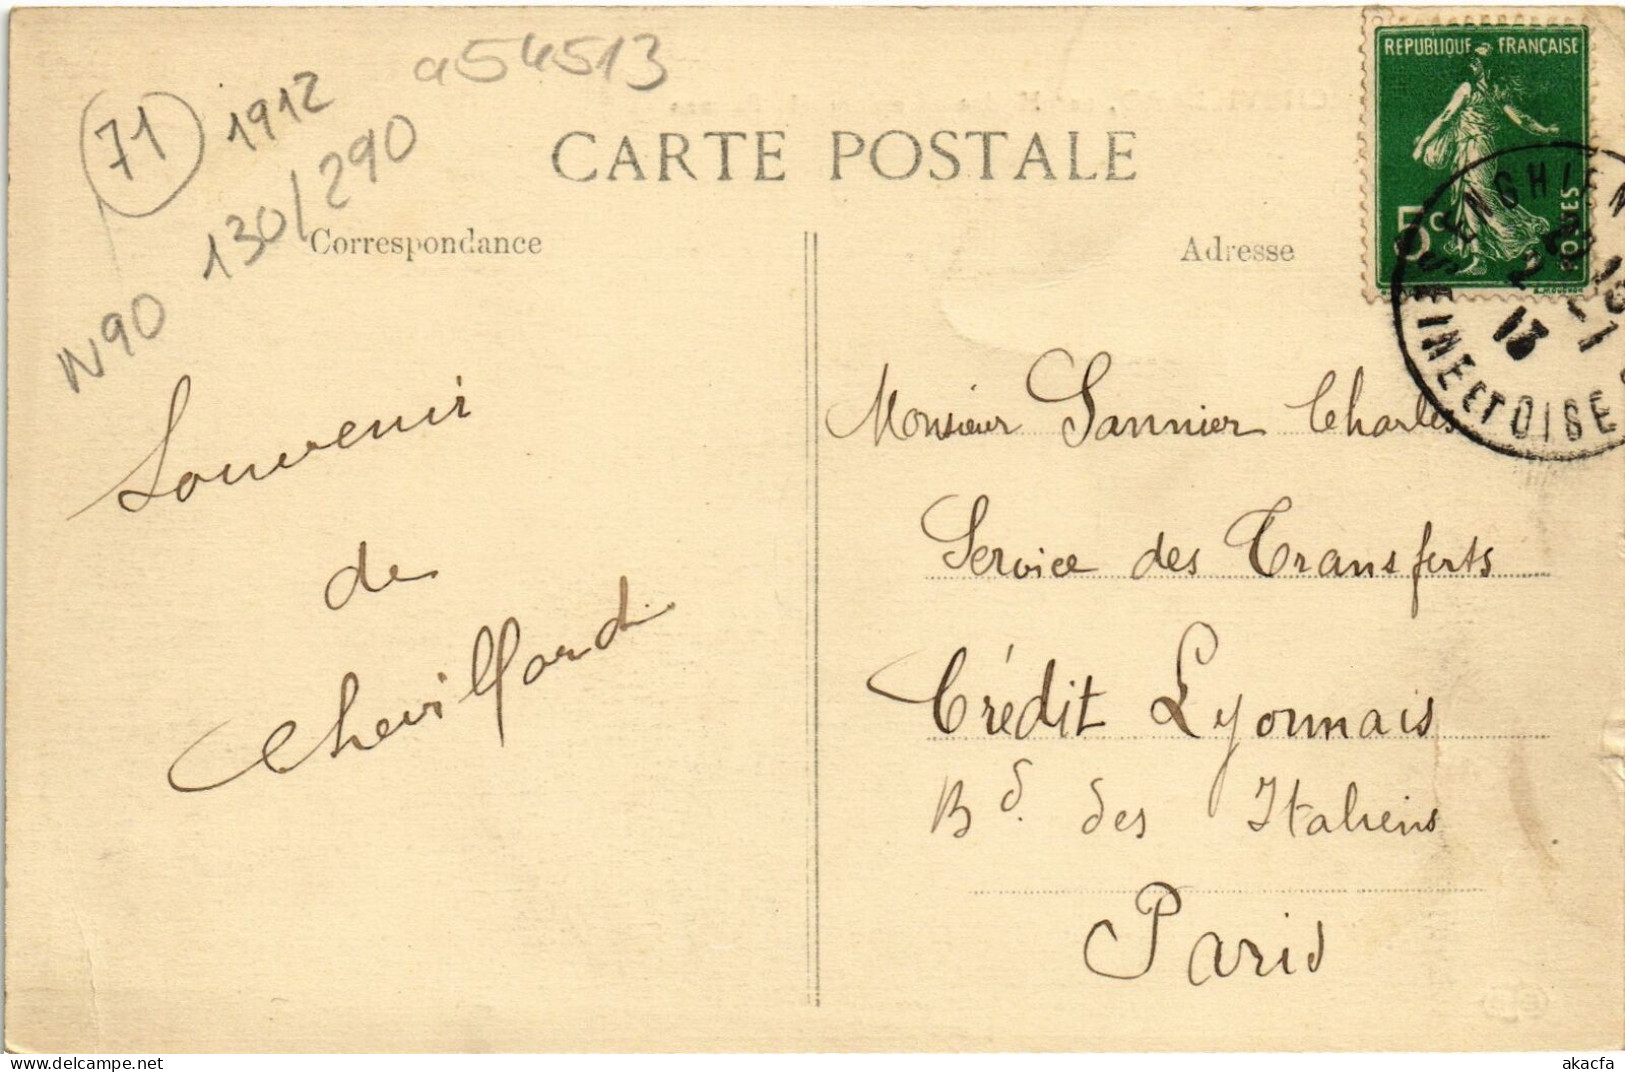 71
1912
a54513
130/290
N90
CARTE POSTALE
Correspondance
Adresse
REPUBLIQUE FRANÇAISE
5c
POSTES
ENGHIEN
SEINE ET OISE
2-1
13
Souvenir
de
Chevillard
Monsieur Sannier Charles
Service des Transferts
Crédit Lyonnais
Bd. des Italiens
Paris
akacfa